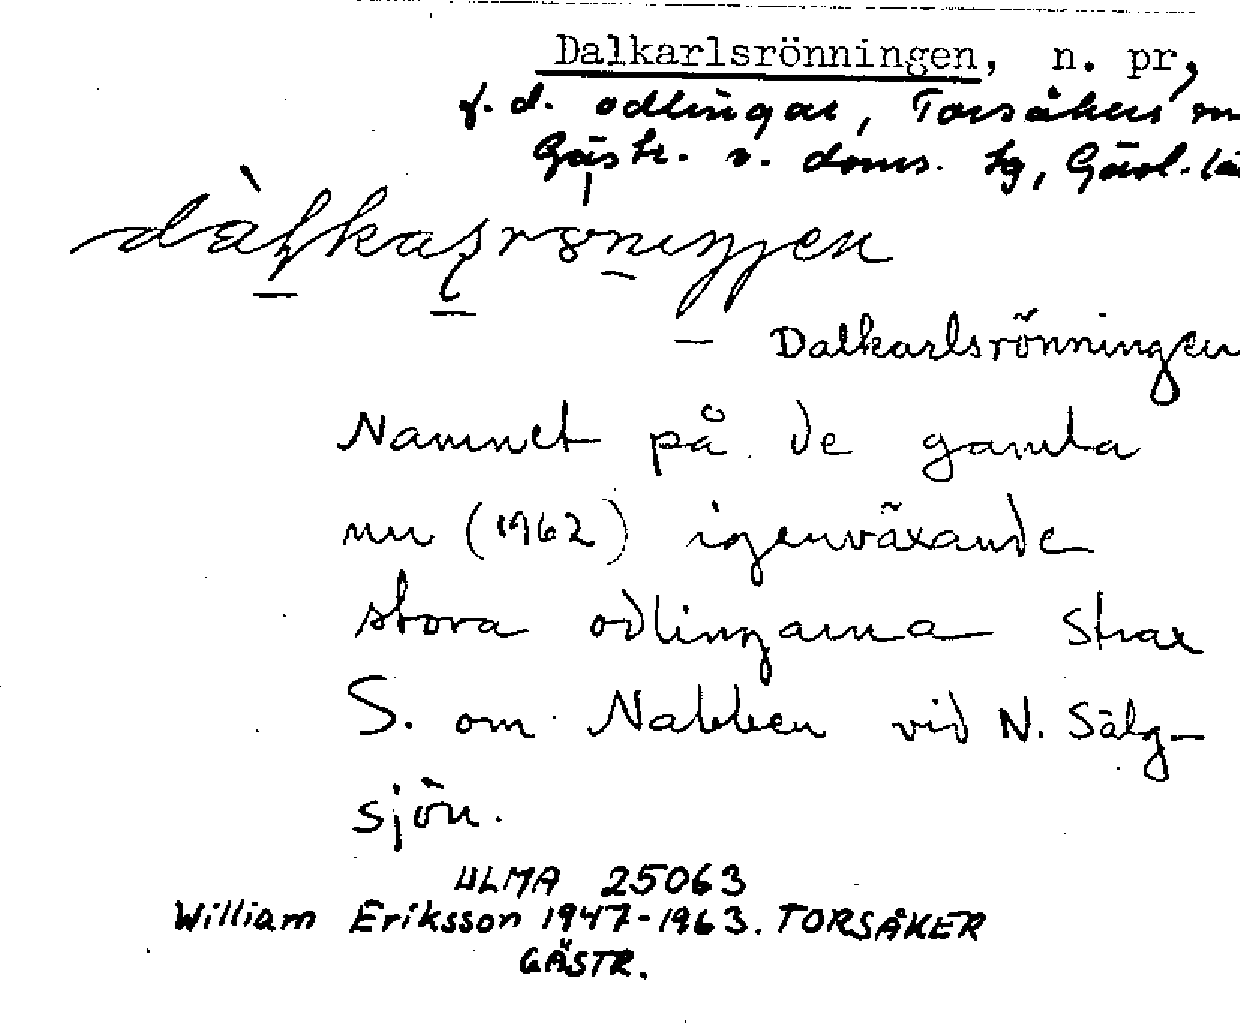 Dalkarlsrönningen, n. pr,
f. d. odlingar, Torsåkers
Gästr. v. doms. tg, Gävl. lä
— Dalkarlsrönningen
Namnet på de gamla
nu (1962) igenväxande
stora odlingarna strax
S. om Nabben vid N. Sälg-
sjön.
ULMA 25063
William Eriksson 1947-1963. TORSÅKER
GÄSTR.